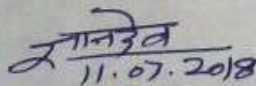 ज्ञानदेव
11.07.2018